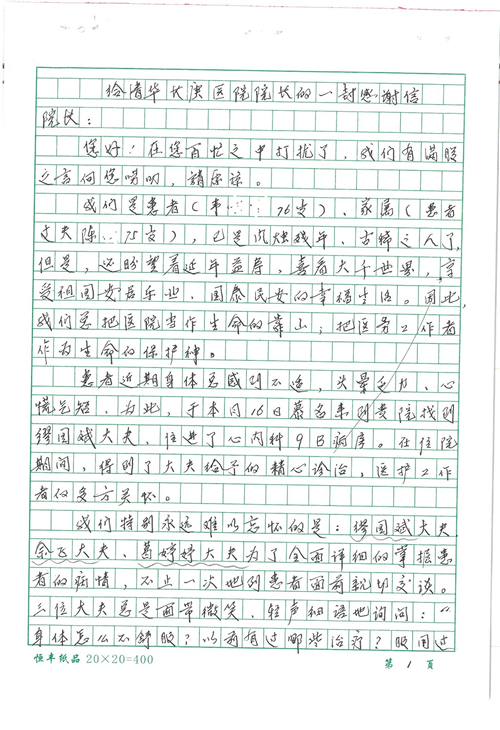 给清华长庚医院院长的一封感谢信
院长：
您好！在您百忙之中打扰了，我们有满腹
之言向您唠叨，请原谅。
我们是患者（韦 76岁）、家属（患者
丈夫陈 75岁），已是风烛残年、古稀之人了，
但是，还盼望着延年益寿，喜看大千世界，享
受祖国安居乐业、国泰民安的幸福生活。因此，
我们总把医院当作生命的靠山；把医务工作者
作为生命的保护神。
患者近期身体总感到不适，头晕乏力、心
慌气短，为此，于本月16日慕名来到贵院找到
缪国斌大夫，住进了心内科9B病房。在住院
期间，得到了大夫给予的精心诊治，医护工作
者的多方关怀。
我们特别永远难以忘怀的是：缪国斌大夫、
余飞大夫、葛婷婷大夫为了全面详细的掌握患
者的病情，不止一次地到患者面前亲切交谈。
三位大夫总是面带微笑、轻声细语地询问：“
身体怎么不舒服？以前有过哪些治疗？服用过
恒丰纸品 20×20=400
第 1 页